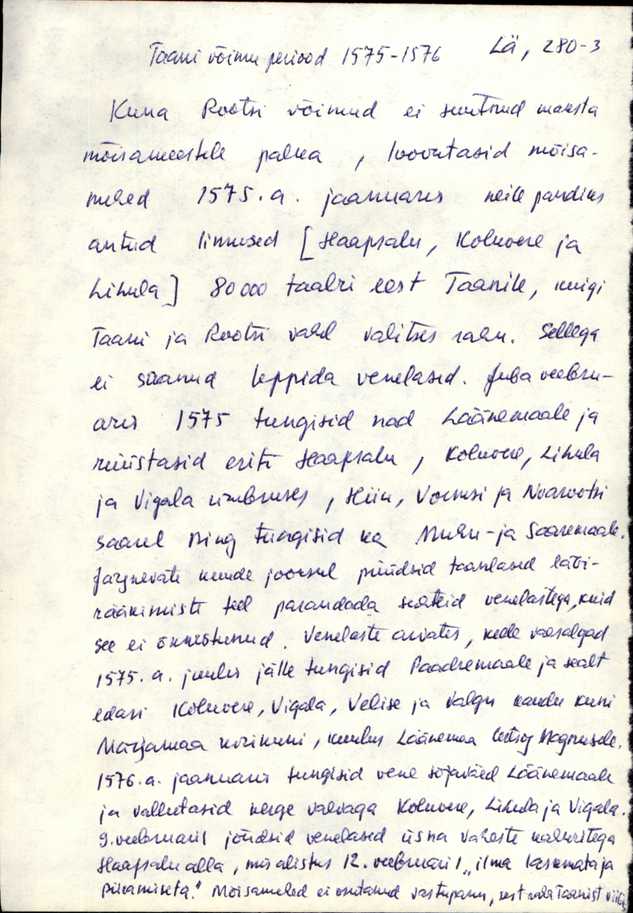 Taani võimu periood 1575-1576 Lä, 280-3
Kuna Rootsi võimud ei suutnud maksta
mõisameestele palka, loovutasid mõisa-
mehed 1575.a. jaanuaris neile pandiks
antud linnused [Haapsalu, Koluvere ja
Lihula] 80000 taalri eest Taanile, kuigi
Taani ja Rootsi vahel valitses rahu. Sellega
ei saanud leppida venelased. Juba veebru-
aris 1575 tungisid nad Läänemaale ja
rüüstasid eriti Haapsalu, Koluvere, Lihula
ja Vigala ümbruses, Hiiu, Vormsi ja Noarootsi
saarel ning tungisid ka Muhu- ja Saaremaale.
Järgnevate kuude jooksul püüdsid taanlased läbi-
rääkimiste teel parandada suhteid venelastega, kuid
see ei õnnestunud. Venelaste arvates, kelle väesalgad
1575.a. juulis jälle tungisid Paadremaale ja sealt
edasi Koluvere, Vigala, Velise ja Valgu kaudu kuni
Märjamaa kirikuni, kuulus Läänemaa Magnusele.
1576.a. jaanuaris tungisid vene sõjaväed Läänemaale
ja vallutasid kerge vaevaga Koluvere, Lihula ja Vigala.
9. veebruaril jõudsid venelased üsna väheste kahuritega
Haapsalu alla, mis alistus 12. veebruaril "ilma laskmata ja
piiramiseta." Mõisamehed ei osutanud vastupanu, sest Taanist